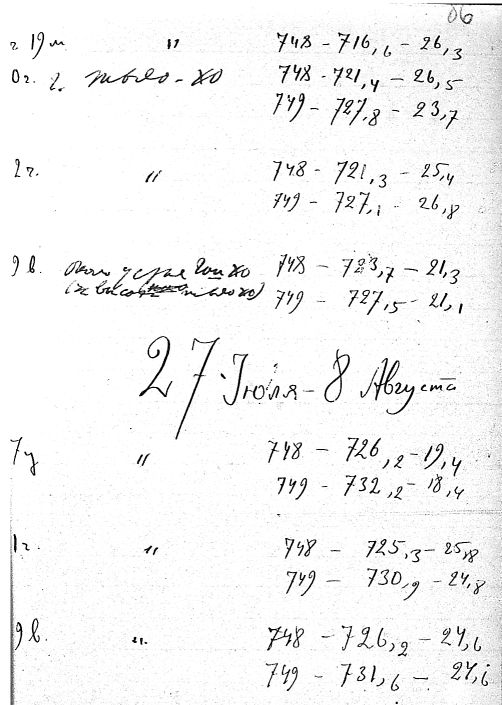 06
ч 19 м " 748 - 716,6 - 26,3
0 ч. 748 - 721,4 - 26,5
749 - 727,8 - 23,7
2 ч. " 748 - 721,3 - 25,4
749 - 727,1 - 26,8
9 в. около устья 748 - 723,7 - 21,3
749 - 727,5 - 21,1
27 Июля - 8 Августа
7 у " 748 - 726,2 - 19,4
749 - 732,2 - 18,4
1 ч. " 748 - 725,3 - 25,8
749 - 730,9 - 24,8
9 в. " 748 - 726,2 - 24,6
749 - 731,6 - 24,6